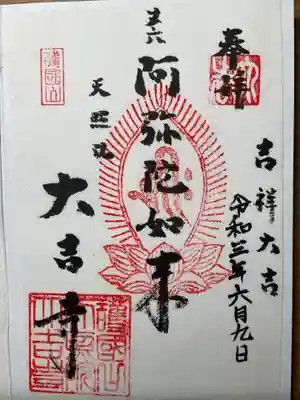 奉拝
吉祥大吉
令和三年六月九日
丈六
阿弥陀如来
天照丸
大吉寺